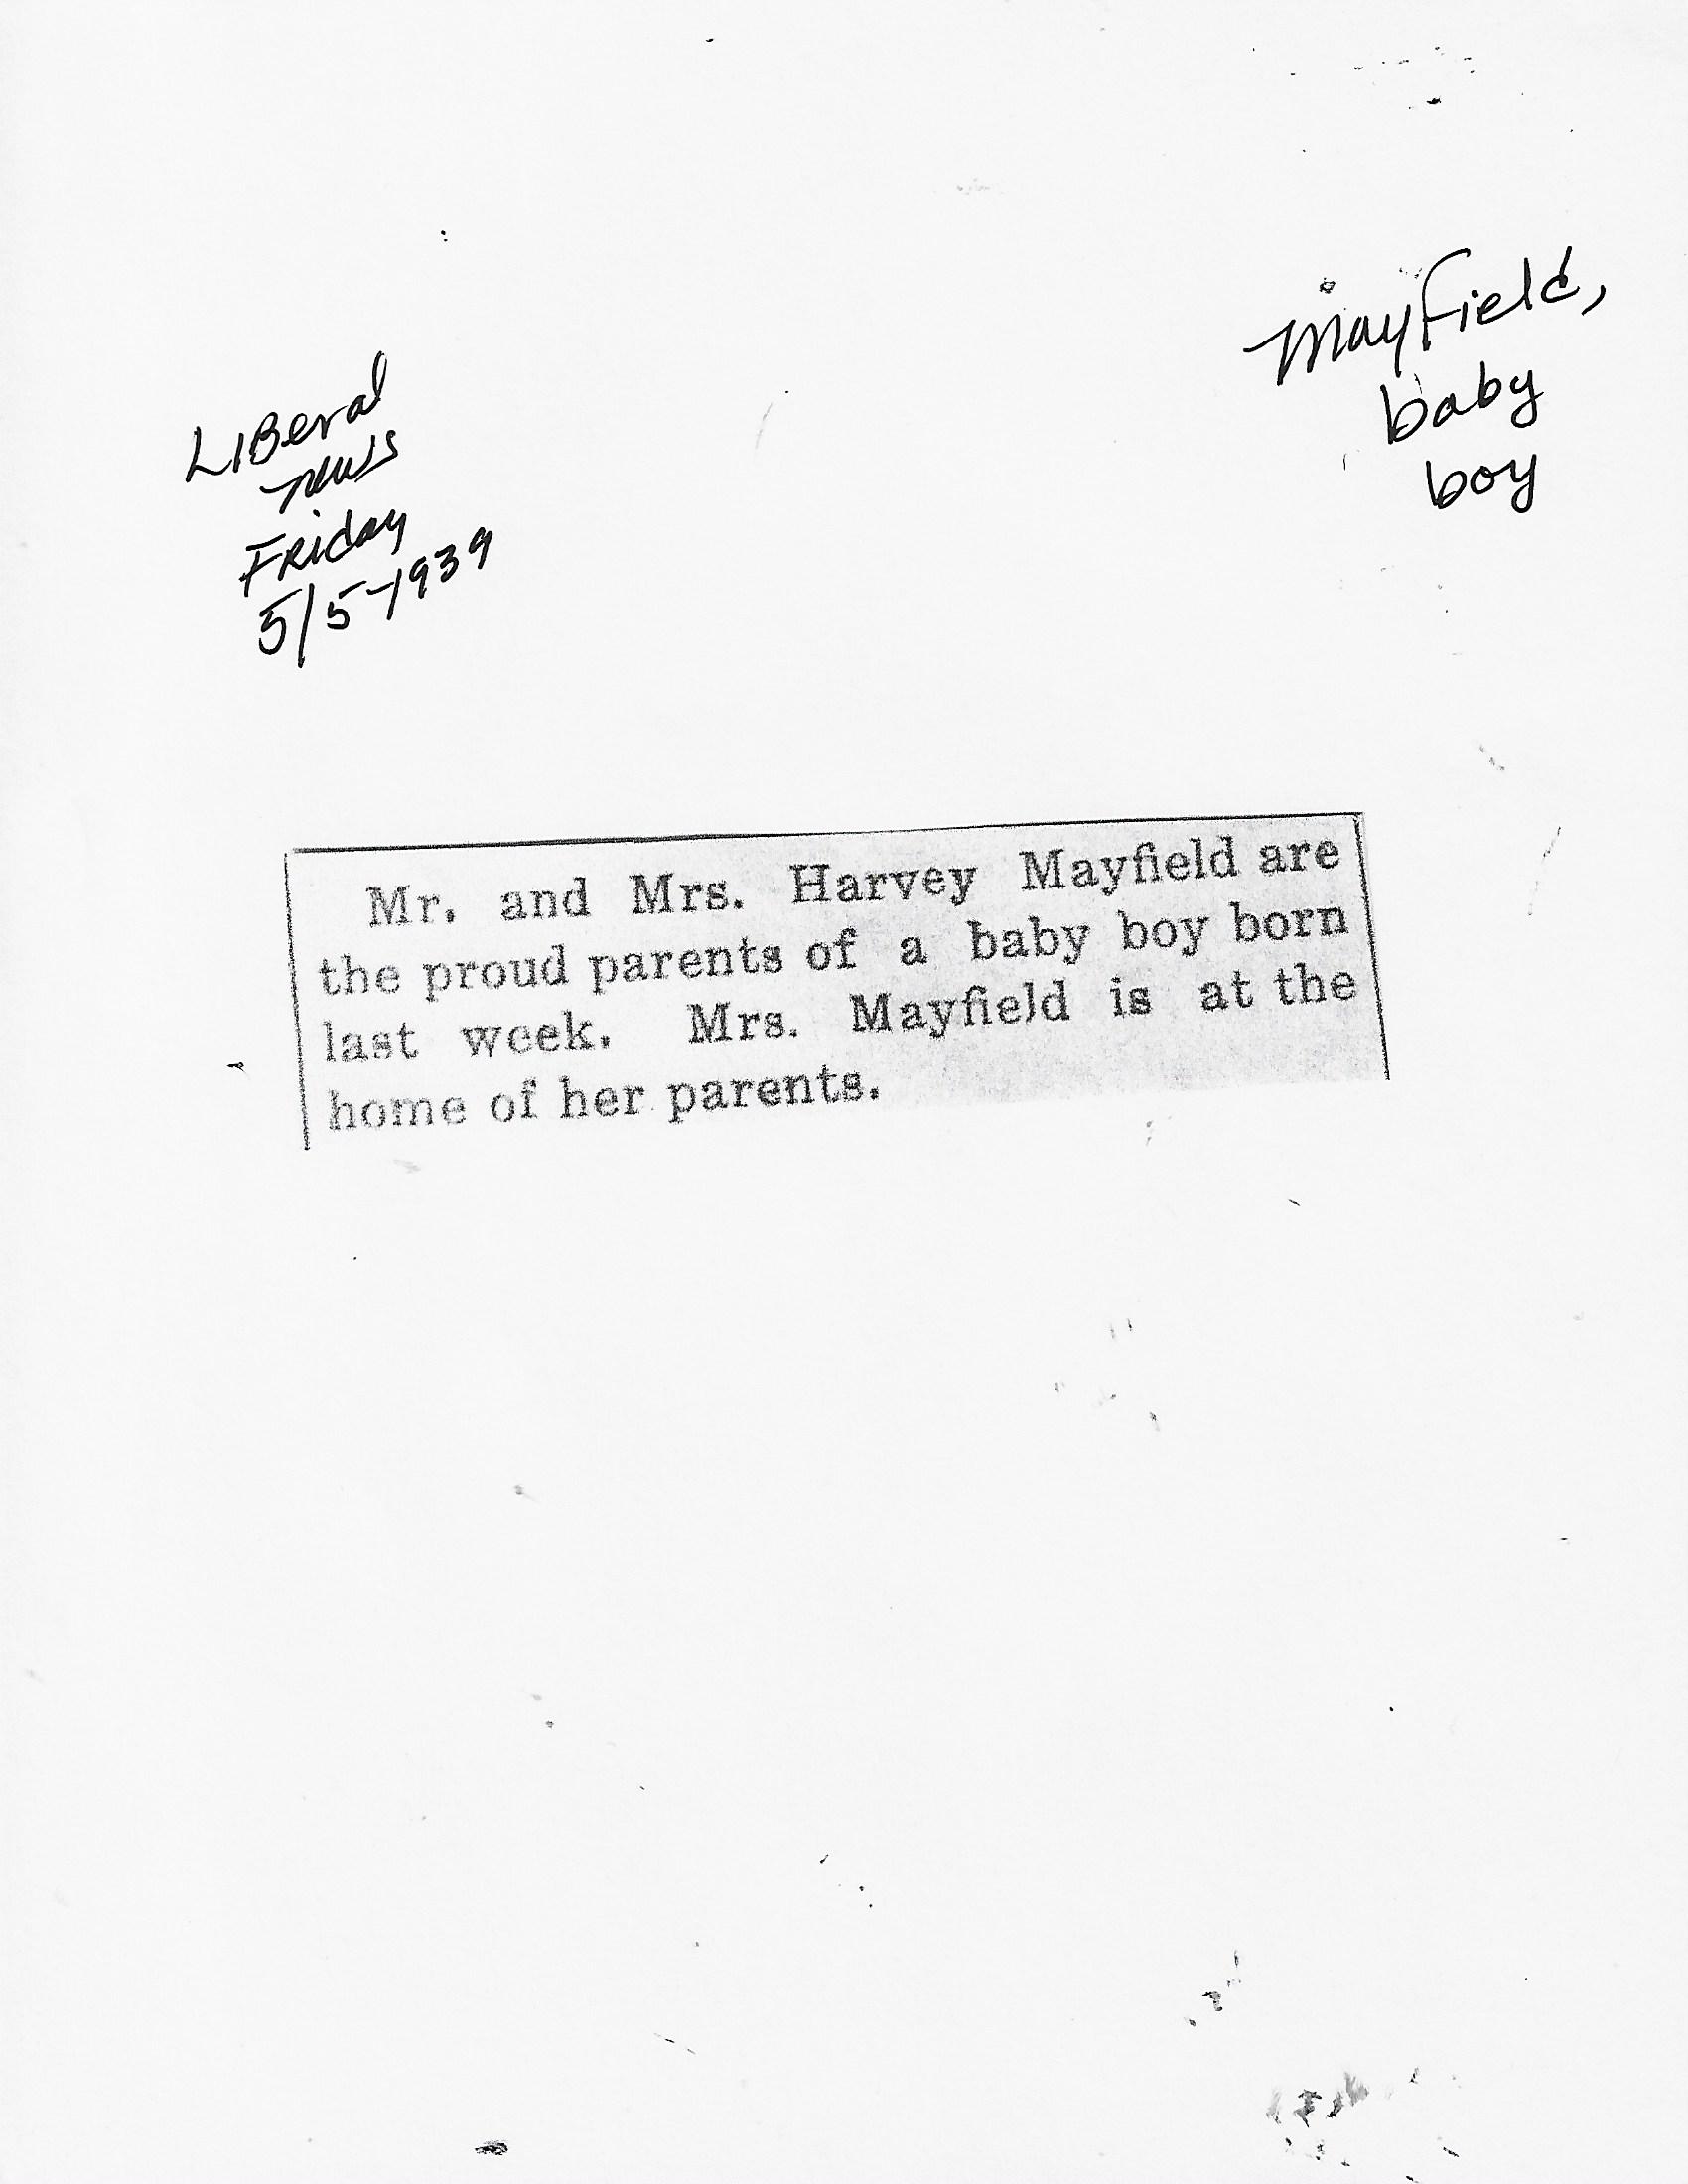 Mayfield,
baby
boy
LIBeral
news
Friday
5/5-1939
Mr. and Mrs. Harvey Mayfield are
the proud parents of a baby boy born
last week. Mrs. Mayfield is at the
home of her parents.